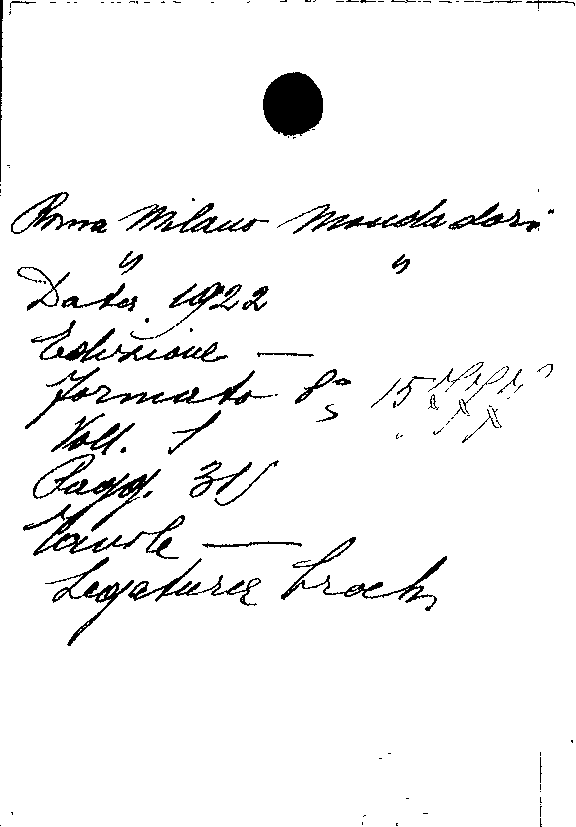 Roma Milano Mondadori
" "
Data. 1922
Edizione —
Formato 8° 15
Voll. 1
Pagg.
Tavole —
Legatura broch.